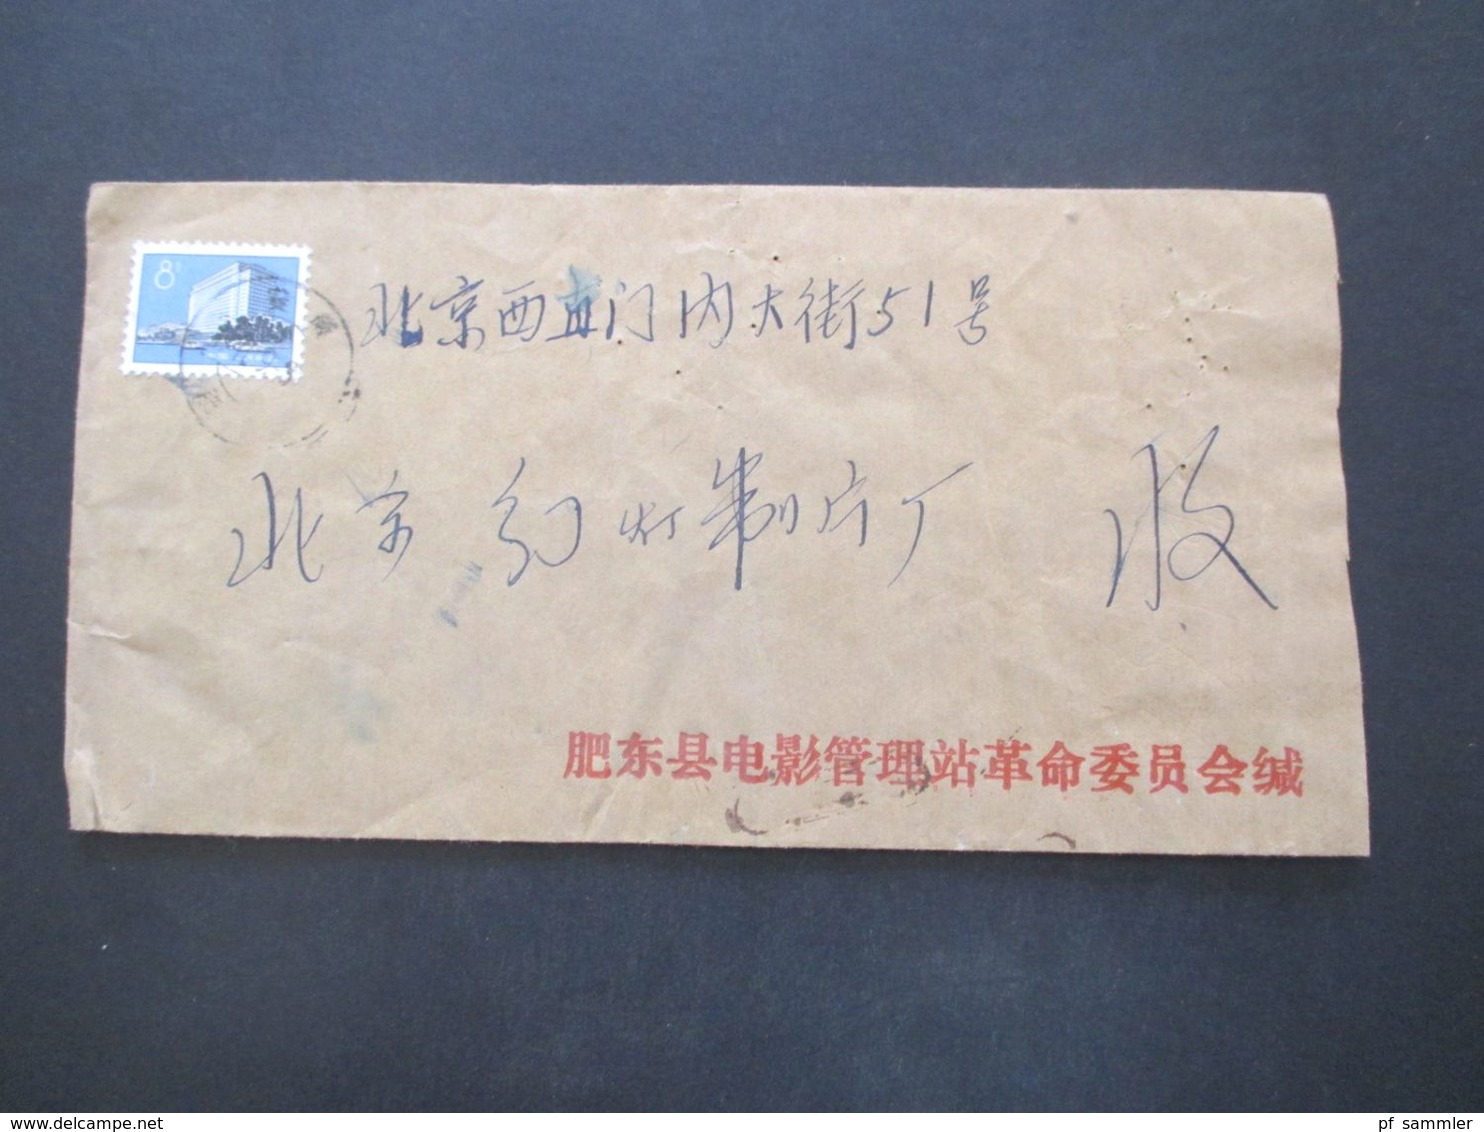 8
北京西直门内大街51号
北京幻灯制片厂 收
肥东县电影管理站革命委员会缄
pf_sammler